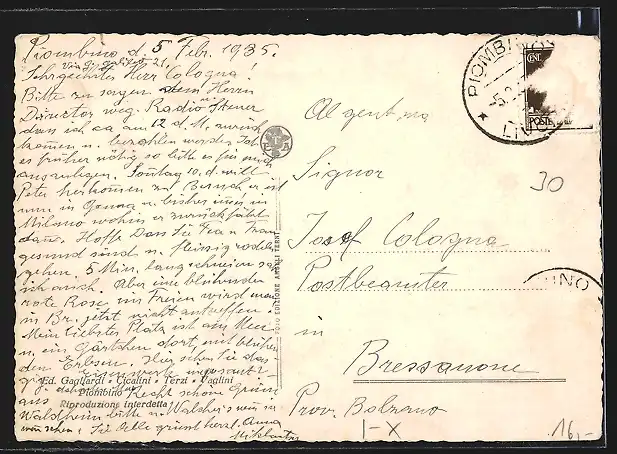 Piombino d. 5 Febr. 1935.
via g. galilei 21.
Sehrgeehrter Herr Cologna!
Bitte zu sagen dem Herrn
Director weg. Radio u. Steuer
dass ich ca am 12 d. M. zurück
komme u. bezahlen werde.
es früher nötig so bitte es für mich
auszulegen. Sontag 10. d. will
Peter herkommen zu Besuch er ist
nun in Genua u. bisher in
Milano wohin er zurück fährt
dann. Hoffe dass Sie Frau u. Fran
gesund sind u. fleissig rodeln
gehen. 5 Min. lang schneien sah
ich auch. Aber eine blühende
rote Rose im Freien wird man
in Br. jetzt nicht antreffen.
Mein liebster Platz ist am Meer
u. ein Gärtchen dort, mit blühen
den Erbsen. Hier sehen Sie das
Eisenwerk
Recht schöne Grüsse
aus
Waldheim bitte u. Walsher's wenn sie
Sie Alle grüsst herzl. Anna
Ed. Gagliardi - Cicalini - Terzi - Paglini
Piombino
Riproduzione interdetta
FOTO EDIZIONE ANGELI TERNI
PIOMBINO
LIVORNO
CENT.
POSTE
INO
Al gent.mo
Signor
Josef Cologna
Postbeamter
in
Bressanone
Prov. Bolzano
30
I-X
16,-